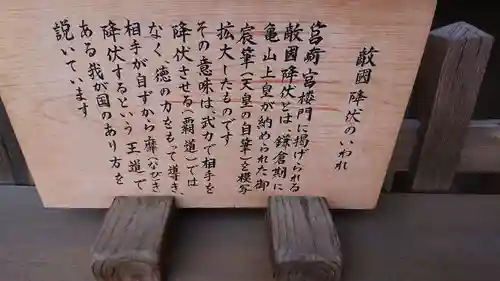 敵國 降伏のいわれ
筥崎宮楼門に掲げられる
敵國降伏とは、鎌倉期に
亀山上皇が納められた御
宸筆(天皇の自筆)を模写
拡大したものです
その意味は、武力で相手を
降伏させる(覇道)では
なく、徳の力をもって導き、
相手が自ずから靡(なび)き
降伏するという王道で
ある我が国のあり方を
説いています